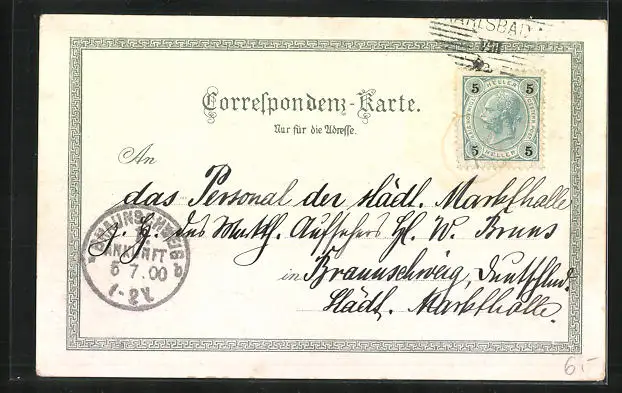 KARLSBAD
5 HELLER 5
5 HELLER 5
Correspondenz-Karte.
Nur für die Adresse.
An
das Personal der städt. Markthalle
z. H. des Markth. Aufsehers H. W. Bruns
in Braunschweig, Deutschland.
Städt. Markthalle.
BRAUNSCHWEIG
ANKUNFT
5 7.00
1-2V.
6.-